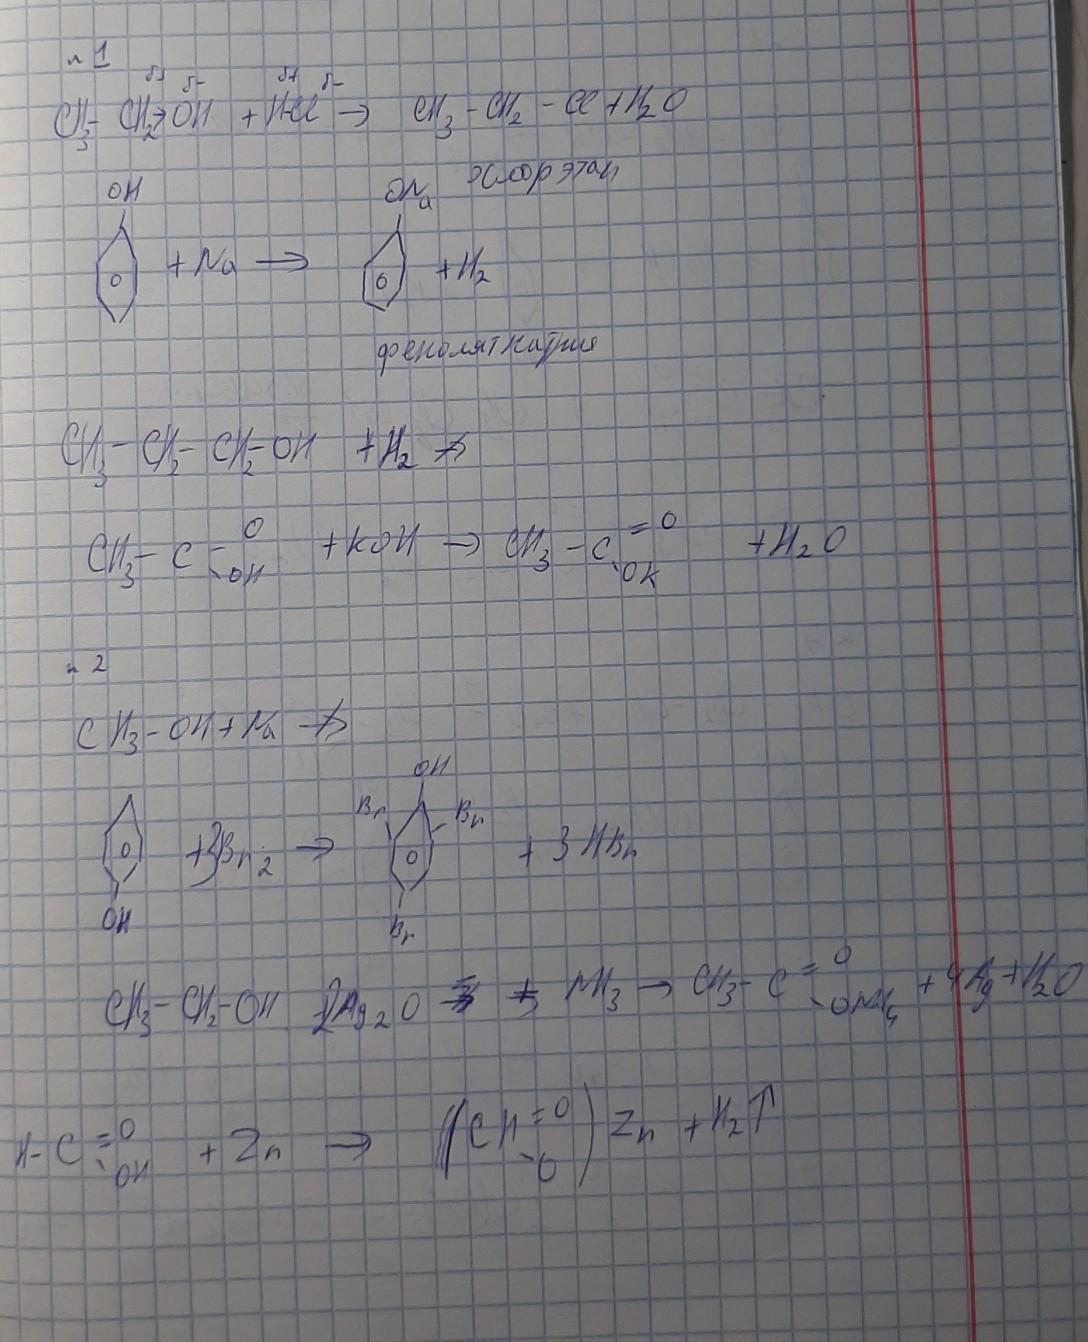 н 1
δ+ δ- δ+ δ-
CH3 - CH2 → OH + HCl → CH3 - CH2 - Cl + H2O
хлорэтан
OH ONa
+ Na → + H2
фенолят натрия
CH3 - CH2 - CH2 - OH + H2 ↛
CH3 - C =O -OH + KOH → CH3 - C =O -OK + H2O
н 2
CH3 - OH + Na ↛
OH
Br Br
+ 3Br2 → + 3HBr
OH Br
CH3 - CH2 - OH 2Ag2O + NH3 → CH3 - C =O -ONH4 + 4Ag + H2O
H - C =O -OH + Zn → (CH =O -O) Zn + H2↑